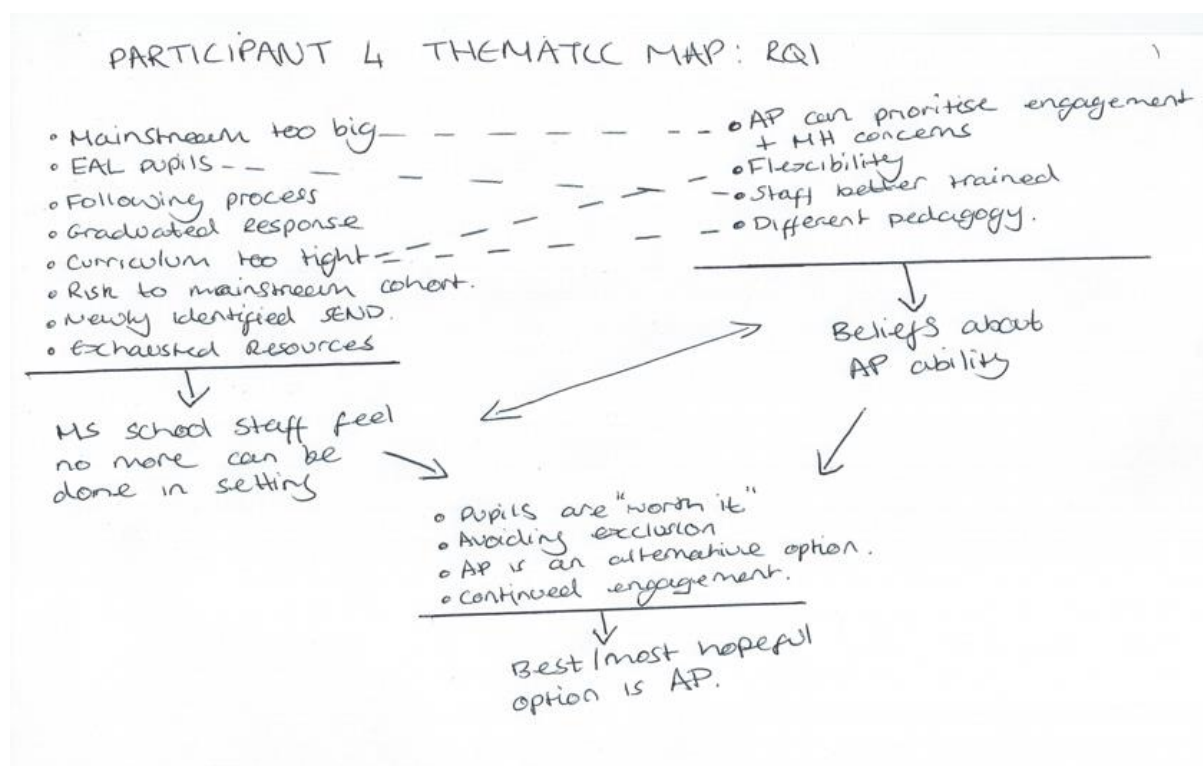 PARTICIPANT 4 THEMATIC MAP: RQ1
• Mainstream too big
• EAL pupils
• Following process
• Graduated Response
• Curriculum too tight
• Risk to mainstream cohort.
• Newly identified SEND.
• Exhausted Resources
MS school staff feel
no more can be
done in setting
• AP can prioritise engagement
+ MH concerns
• Flexibility
• Staff better trained
• Different pedagogy.
Beliefs about
AP ability
• Pupils are "worth it"
• Avoiding exclusion
• AP is an alternative option.
• Continued engagement.
Best/most hopeful
option is AP.